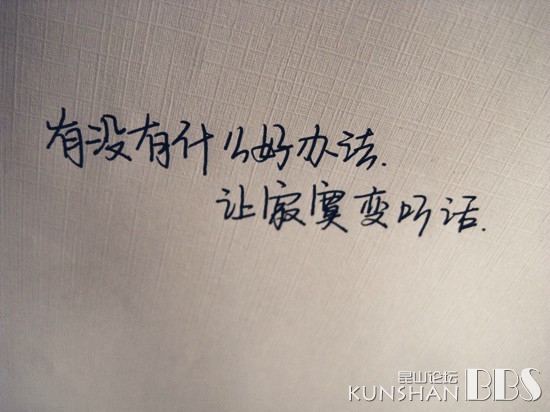 有没有什么好办法.
让寂寞变听话.
昆山论坛
KUNSHAN BBS